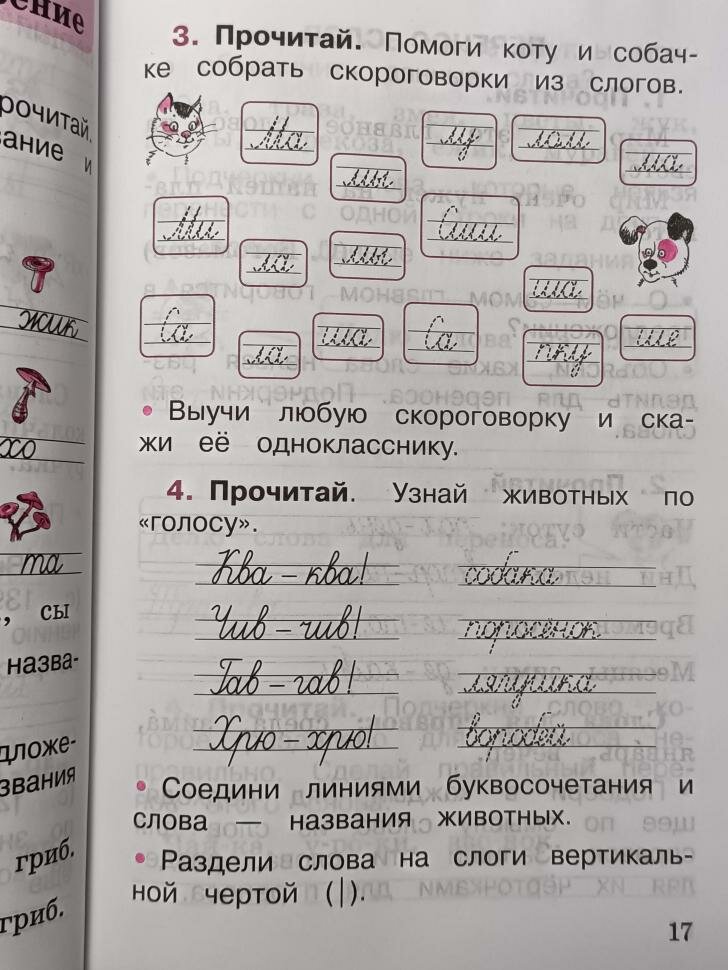 ение
рочитай.
вание и
жик
хо
та
, сы
назва-
дложе-
звания
гриб.
гриб.
3. Прочитай. Помоги коту и собач-
ке собрать скороговорки из слогов.
Ма му лом ма
мы
Ми Сши
ла мы
ша
Са ла ша Са пку ше
• Выучи любую скороговорку и ска-
жи её однокласснику.
4. Прочитай. Узнай животных по
«голосу».
Ква – ква! собака
Чив – чив! поросёнок
Гав – гав! лягушка
Хрю – хрю! воробей
• Соедини линиями буквосочетания и
слова — названия животных.
• Раздели слова на слоги вертикаль-
ной чертой (|).
17